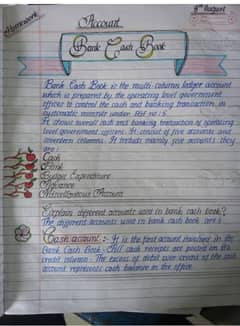 Homework
8th August
Account
Bank Cash Book
Bank Cash Book is the multi column ledger account
which is prepared by the operating level government
offices to control the cash and banking transaction, in
systematic manner under
It shows overall cash and banking transaction of operating
level government offices. It consist of five accounts and
seventeen columns. It include mainly five accounts they
are :
Cash
Bank
Budget Expenditure
Advance
Miscellaneous Account
Explain different accounts used in bank cash book?
The different accounts used in bank cash book are :
Cash account :- It is the first account involved in the
Bank Cash Book. All cash receipts are posted on it's
credit column. The excess of debit over credit of the cash
account represents cash balance in the office.